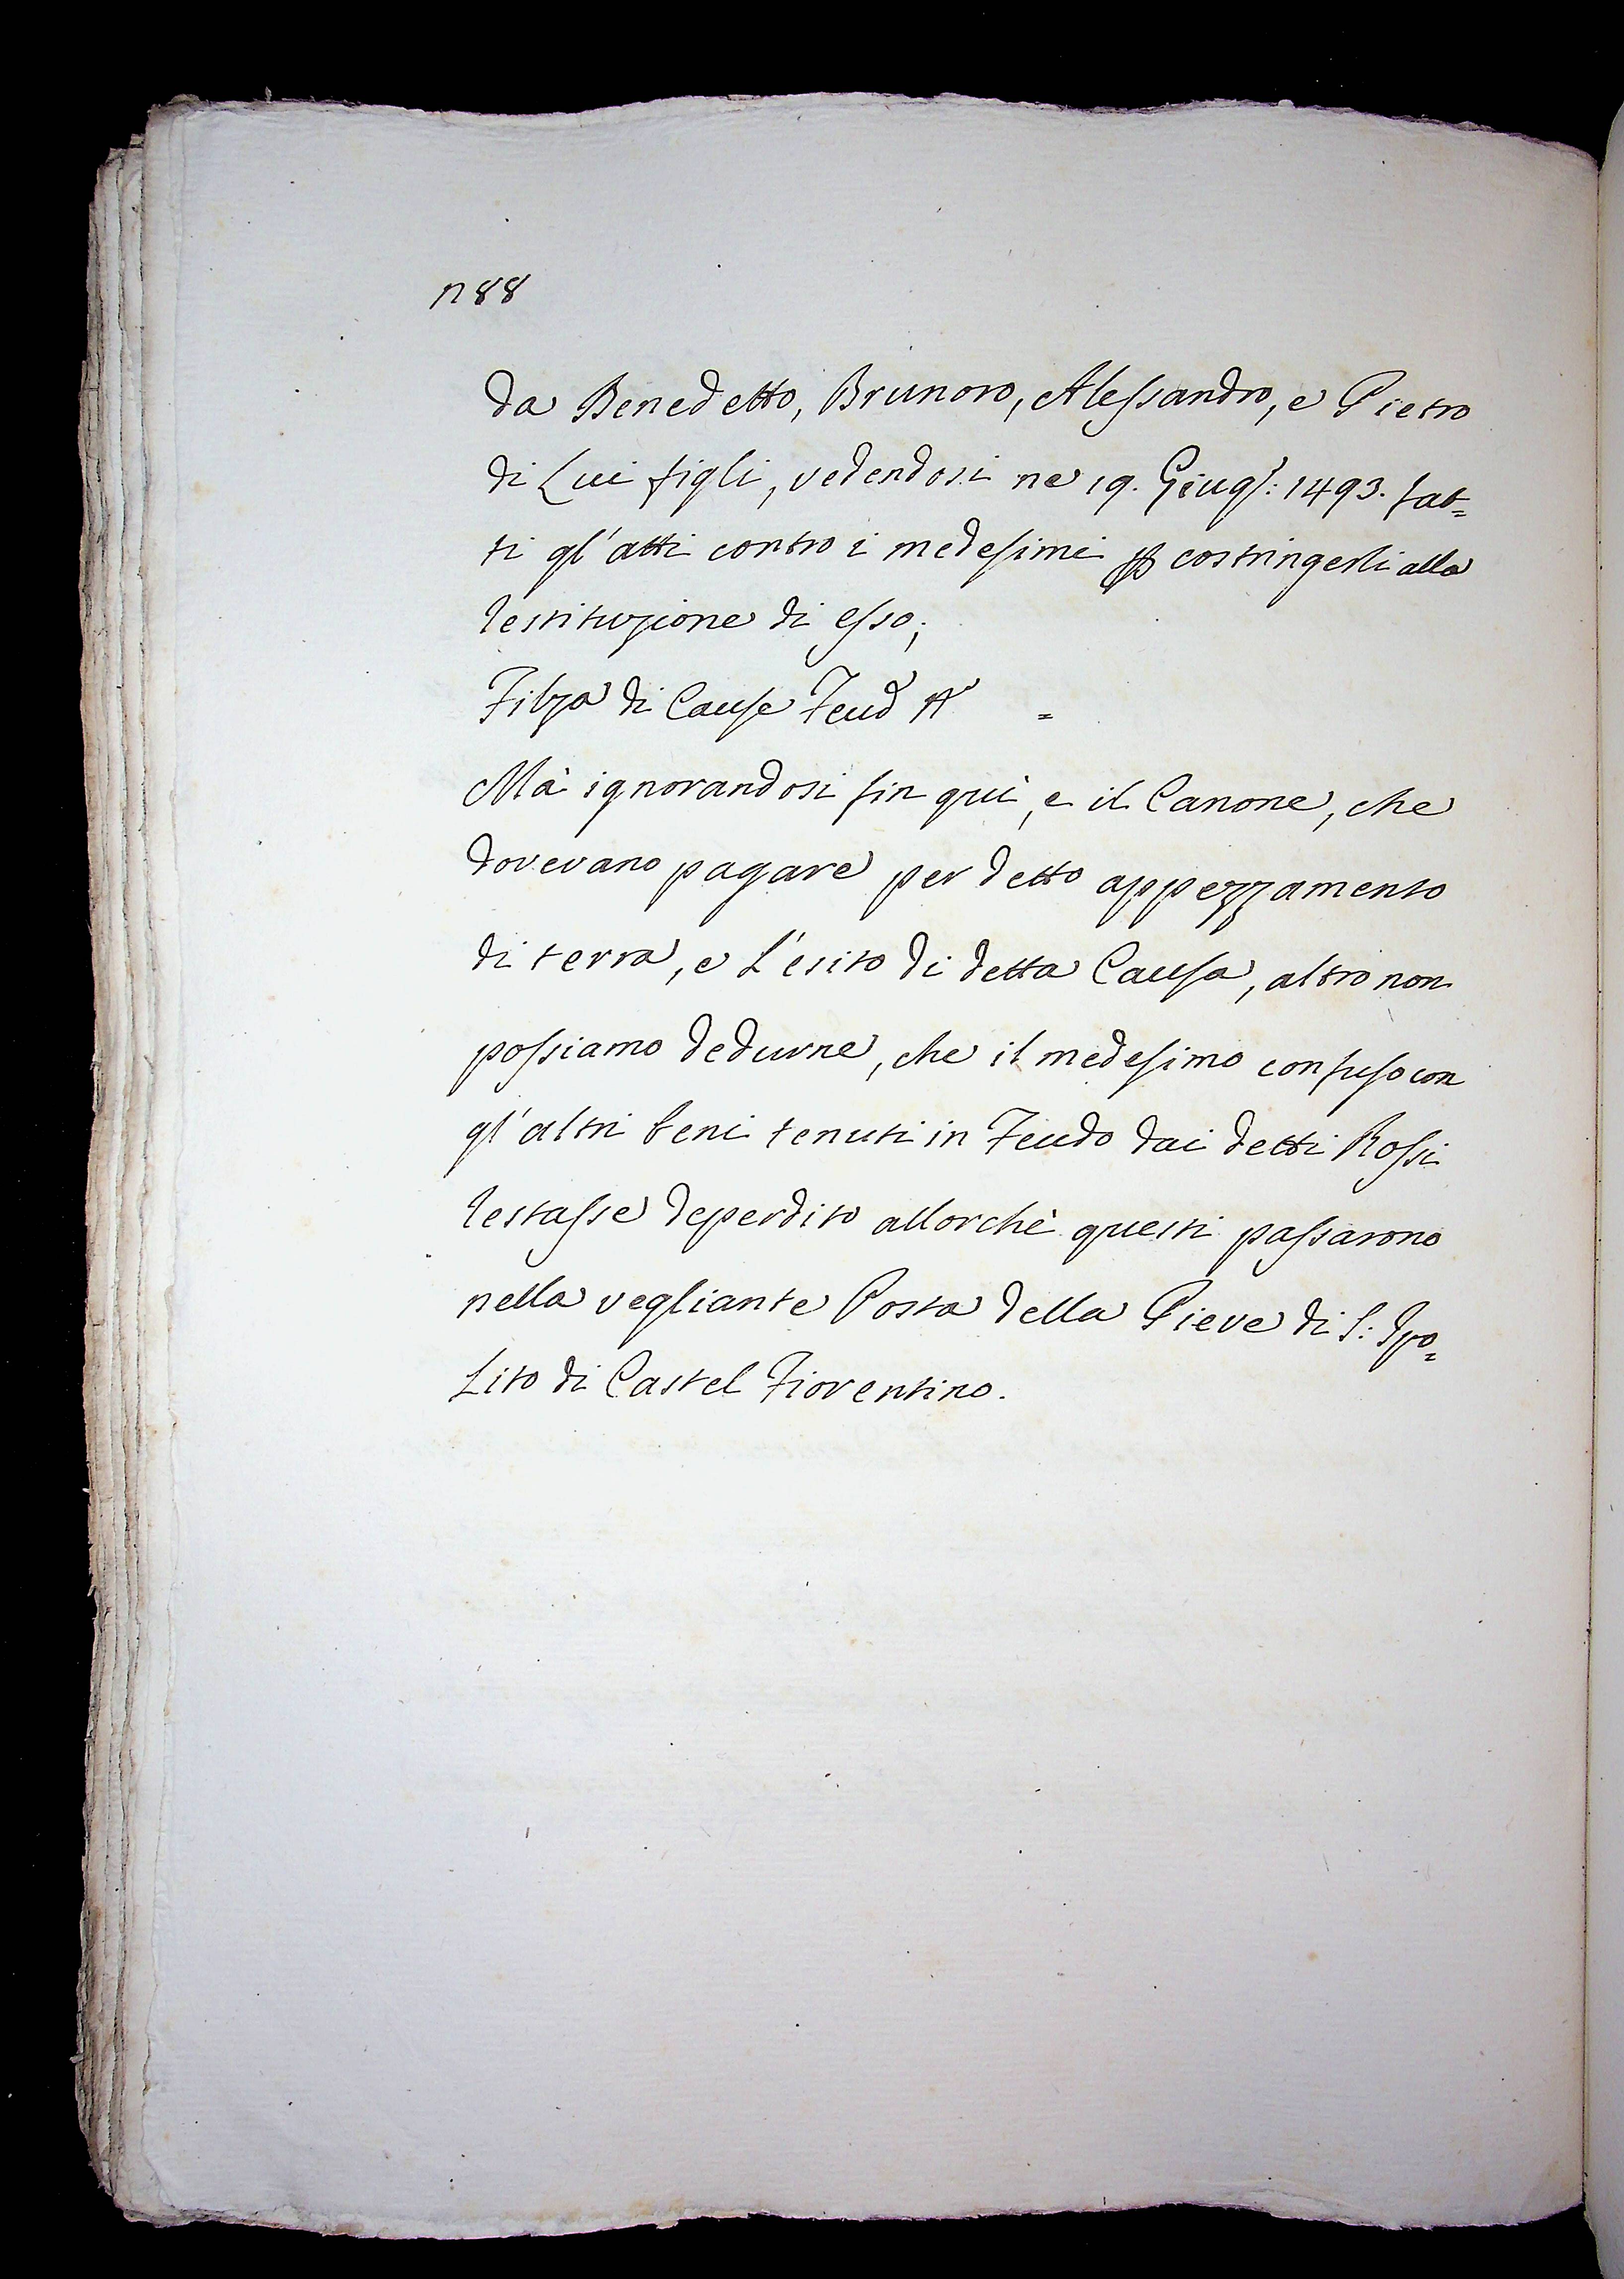 n 88
da Benedetto, Brunoro, Alessandro, e Pietro
di Lui figli, vedendosi ne 19. Giug: 1493. fat=
ti gl'atti contro i medesimi p costringerli alla
restituzione di esso;
Filza di Cause Feud A =
Mà ignorandosi fin quì, e il Canone, che
dovevano pagare per detto appezzamento
di terra, e L'esito di detta Causa, altro non
possiamo dedurne, che il medesimo confuso con
gl'altri beni tenuti in Feudo dai detti Rossi
restasse deperdito allorchè questi passarono
nella vegliante Posta della Pieve di S: Ipo=
Lito di Castel Fiorentino.